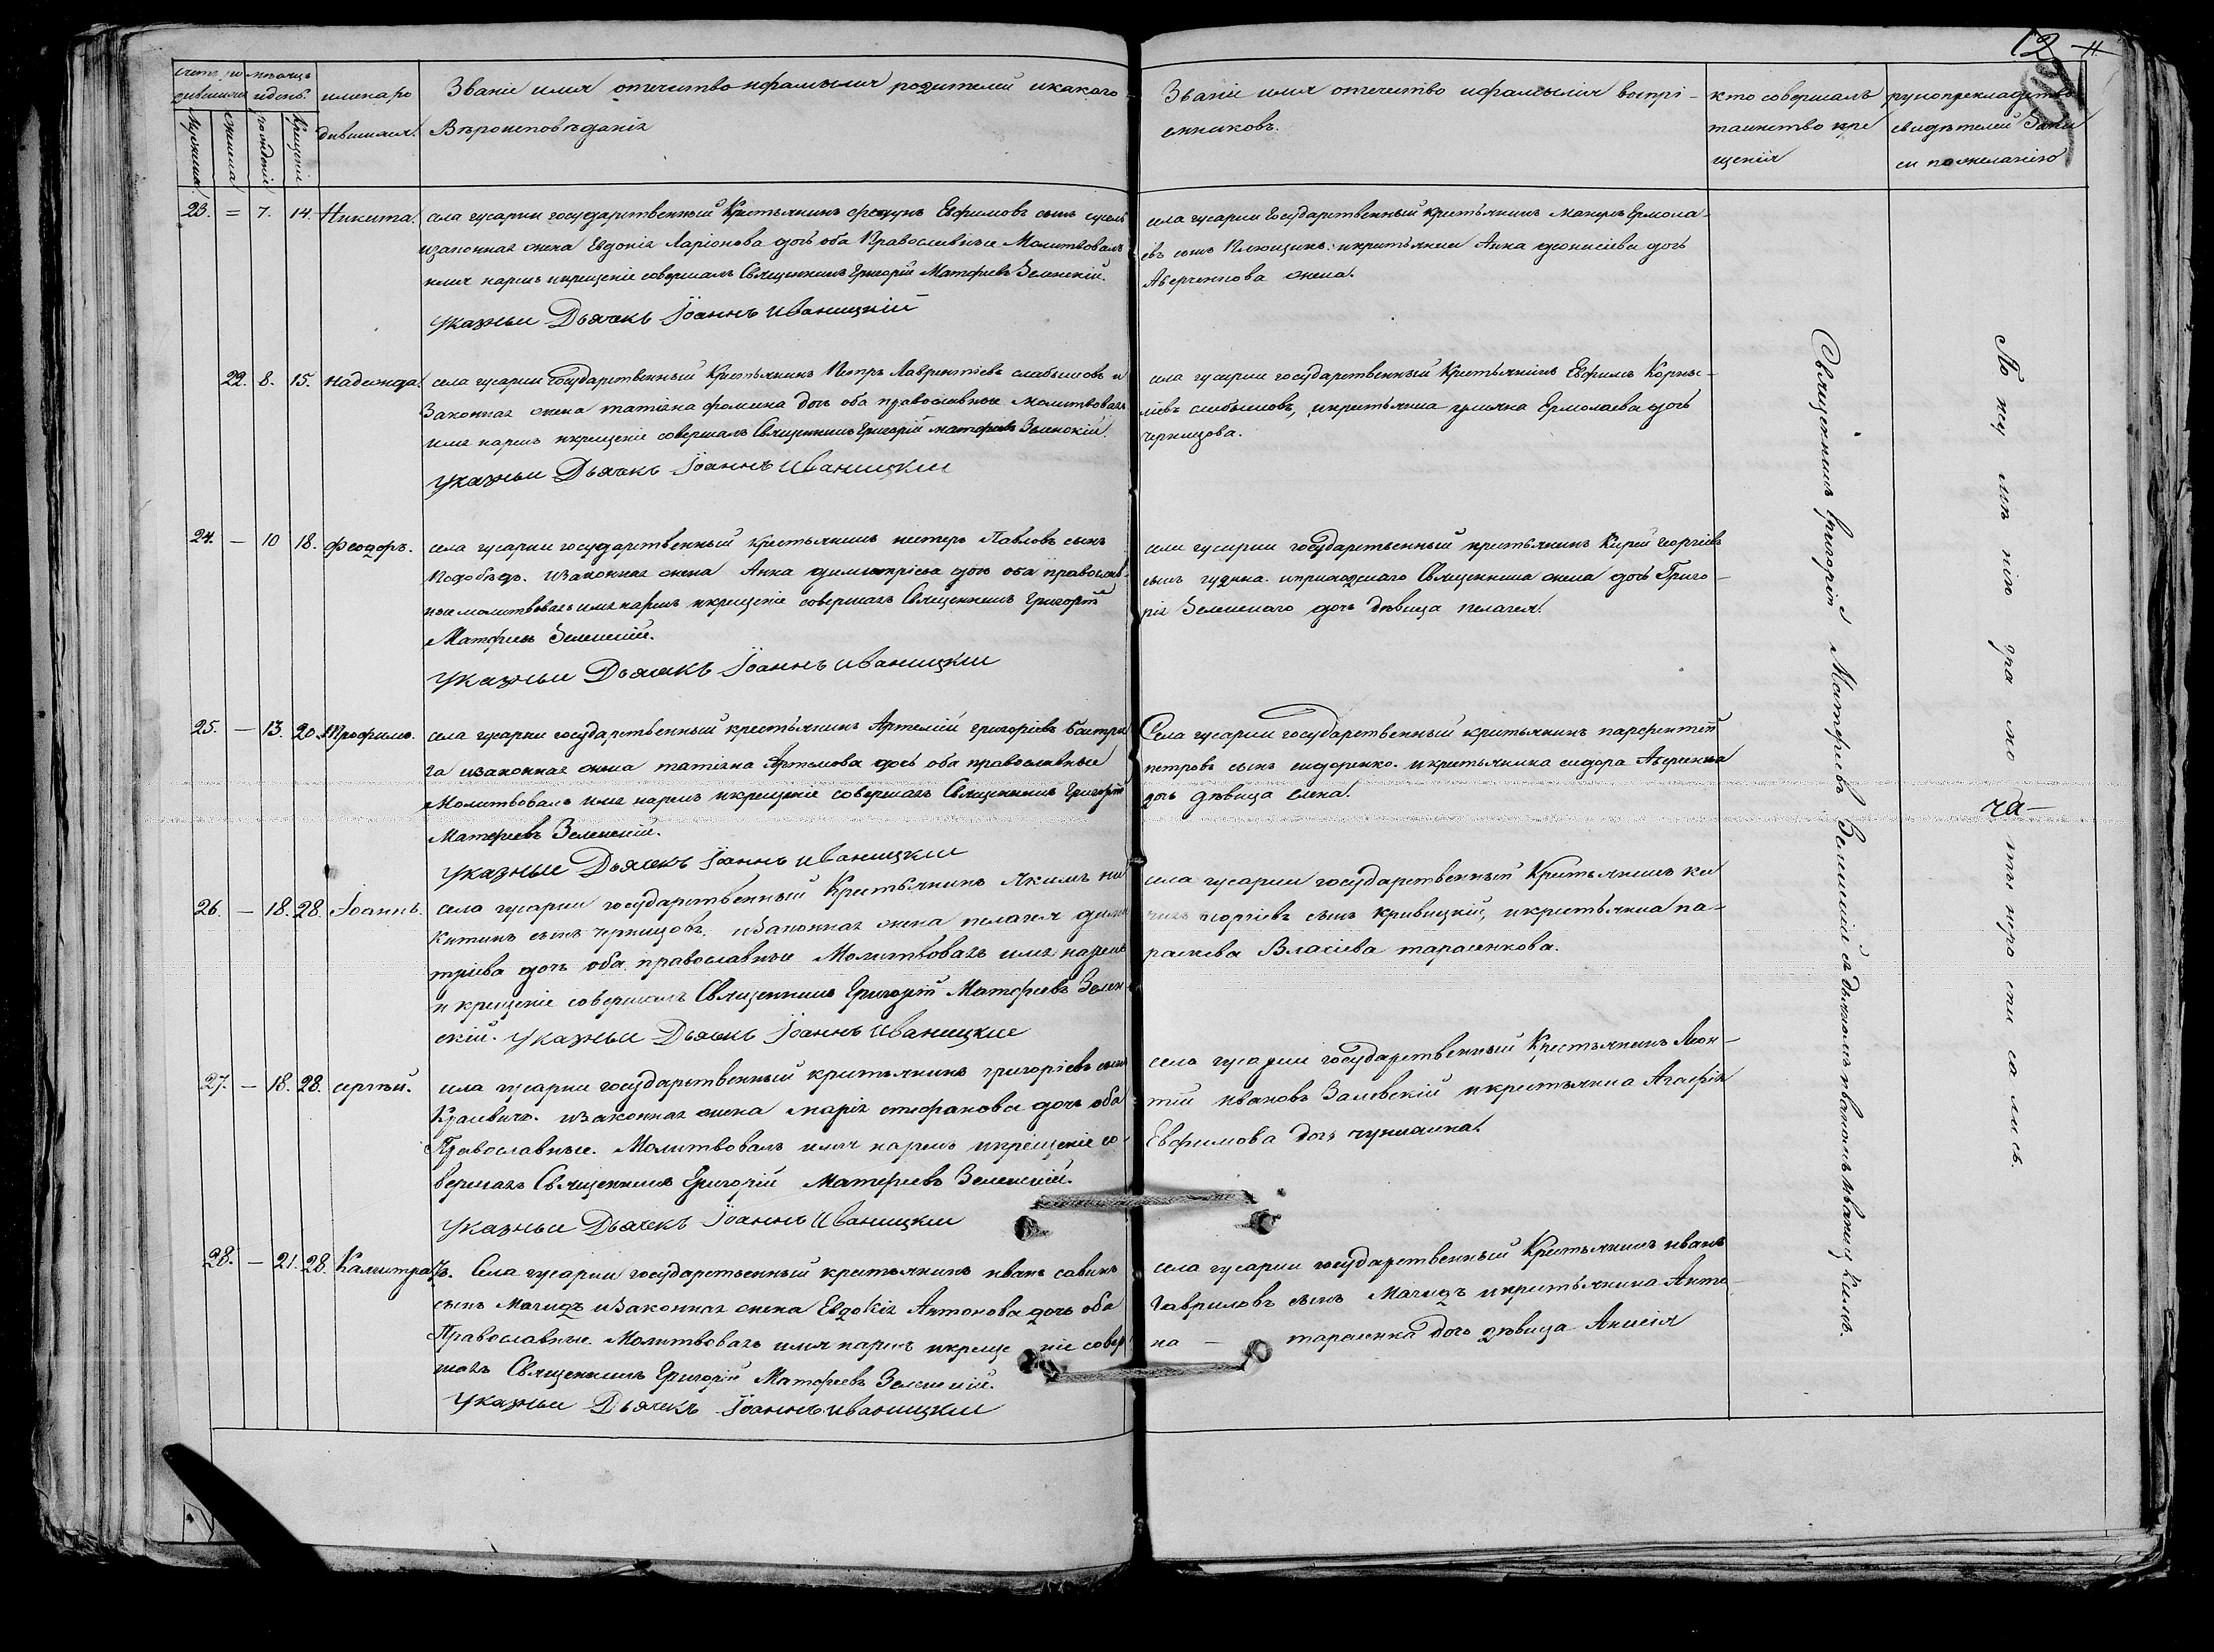 12
11
Званіе имя отечество ифамилія родителей икакаго
Вѣроисповѣданія
Званіе имя отечество ифамилія воспрі-
емниковъ.
кто совершалъ
таинство кре
щенія
имена ро
дившихся.
рожденіе
Крещеніе
23. = 7. 14. Никита. села гусарки государственный Крестьянинъ Евфимовъ сынъ
изаконная жена Евдокія Ларіонова дочь оба Православные Молитвовалъ
имя нарекъ икрещеніе совершалъ Священникъ Григорій Матфеевъ Зеленскій.
указные Дьячекъ Іоаннъ Иваницкій
села гусарки Государственный крестьянинъ Ермола-
евъ сынъ икрестьянки Анна деонисіева дочь
Аверченкова жена.
22. 8. 15. Надежда. села гусарки государственный Крестьянинъ Петръ Лаврентіевъ слабышовъ и
Законная жена татіяна фомина дочь оба православные молитвовалъ
имя нарекъ икрещеніе совершалъ Священникъ Григорій матфеевъ Зеленскій.
указные Дьячекъ Іоаннъ Иваницкіи
села гусарки государственный Крестьянинъ Евфимъ Корни-
ліевъ слабышовъ, икрестьянка уліяна Ермолаева дочь
чернцова.
24. — 10 18. Феодоръ. села гусарки государственный крестьянинъ нестеръ Павловъ сынъ
Подобѣдъ. изаконная жена Анна димитріева дочь оба православ-
ные молитвовалъ имя нарекъ икрещеніе совершалъ Священникъ Григорій
Матфеевъ Зеленскій.
указные Дьячекъ Іоаннъ Иваницкіи
села гусарки государственный крестьянинъ Кирей георгіевъ
сынъ гудкка. иприходскаго Священника жена дочь Григо-
рія Зеленскаго дочь дѣвица пелагея.
25. — 13. 20. Трофимъ. села гусарки государственный крестьянинъ Артемій григоріевъ бастри
га изаконная жена татіяна Артемова дочь оба православные
Молитвовалъ имя нарекъ икрещеніе совершалъ Священникъ Григорій
Матфеевъ Зеленскій.
указные Дьячекъ Іоаннъ Иваницкіи
Села гусарки государственный крестьянинъ парфентій
петровъ сынъ сидоренко. икрестьянина сидора Аверченка
дочь дѣвица елена.
26. — 18. 28. Іоаннъ. села гусарки государственный Крестьянинъ Якимъ ни
китинъ сынъ чернцовъ. изаконная жена пелагея дими
тріева дочь оба православные Молитвовалъ имя нарекъ
и крещеніе совершалъ Священникъ Григорій Матфеевъ Зелен-
скій. указные Дьячекъ Іоаннъ Иваницкіи
села гусарки государственный Крестьянинъ ки
георгіевъ сынъ кривицкій, икрестьянка па-
раскева Власіева тарасенкова.
27. — 18. 28. сергѣй. села гусарки государственный крестьянинъ григоріевъ сынъ
Краевичъ. изаконная жена марія стефанова дочь оба
Православные. Молитвовалъ имя нарекъ икрещеніе со-
вершалъ Священникъ Григорій Матфеевъ Зеленскій.
указные Дьячекъ Іоаннъ Иваницкіи
села гусарки государственный Крестьянинъ Леон-
тій ивановъ Залевскій икрестьянка Агафія
Евфимова дочь
28. — 21. 28. Калистратъ. Села гусарки государственный крестьянинъ иванъ савинъ
сынъ Магидъ изаконная жена Евдокія Антонова дочь оба
Православные. Молитвовалъ имя нарекъ икрещеніе совер
шалъ Священникъ Григорій Матфеевъ Зеленскій.
указные Дьячекъ Іоаннъ Иваницкіи
села гусарки государственный Крестьянинъ иванъ
гавриловъ сынъ Магидъ икрестьянина Анто-
на — тарасенка дочь дѣвица Анисія
Священникъ Григорій Матфеевъ Зеленскій здьячкомъ Иваницкимъ.
По не умѣ нію гра мо ты не ро спи са лись.